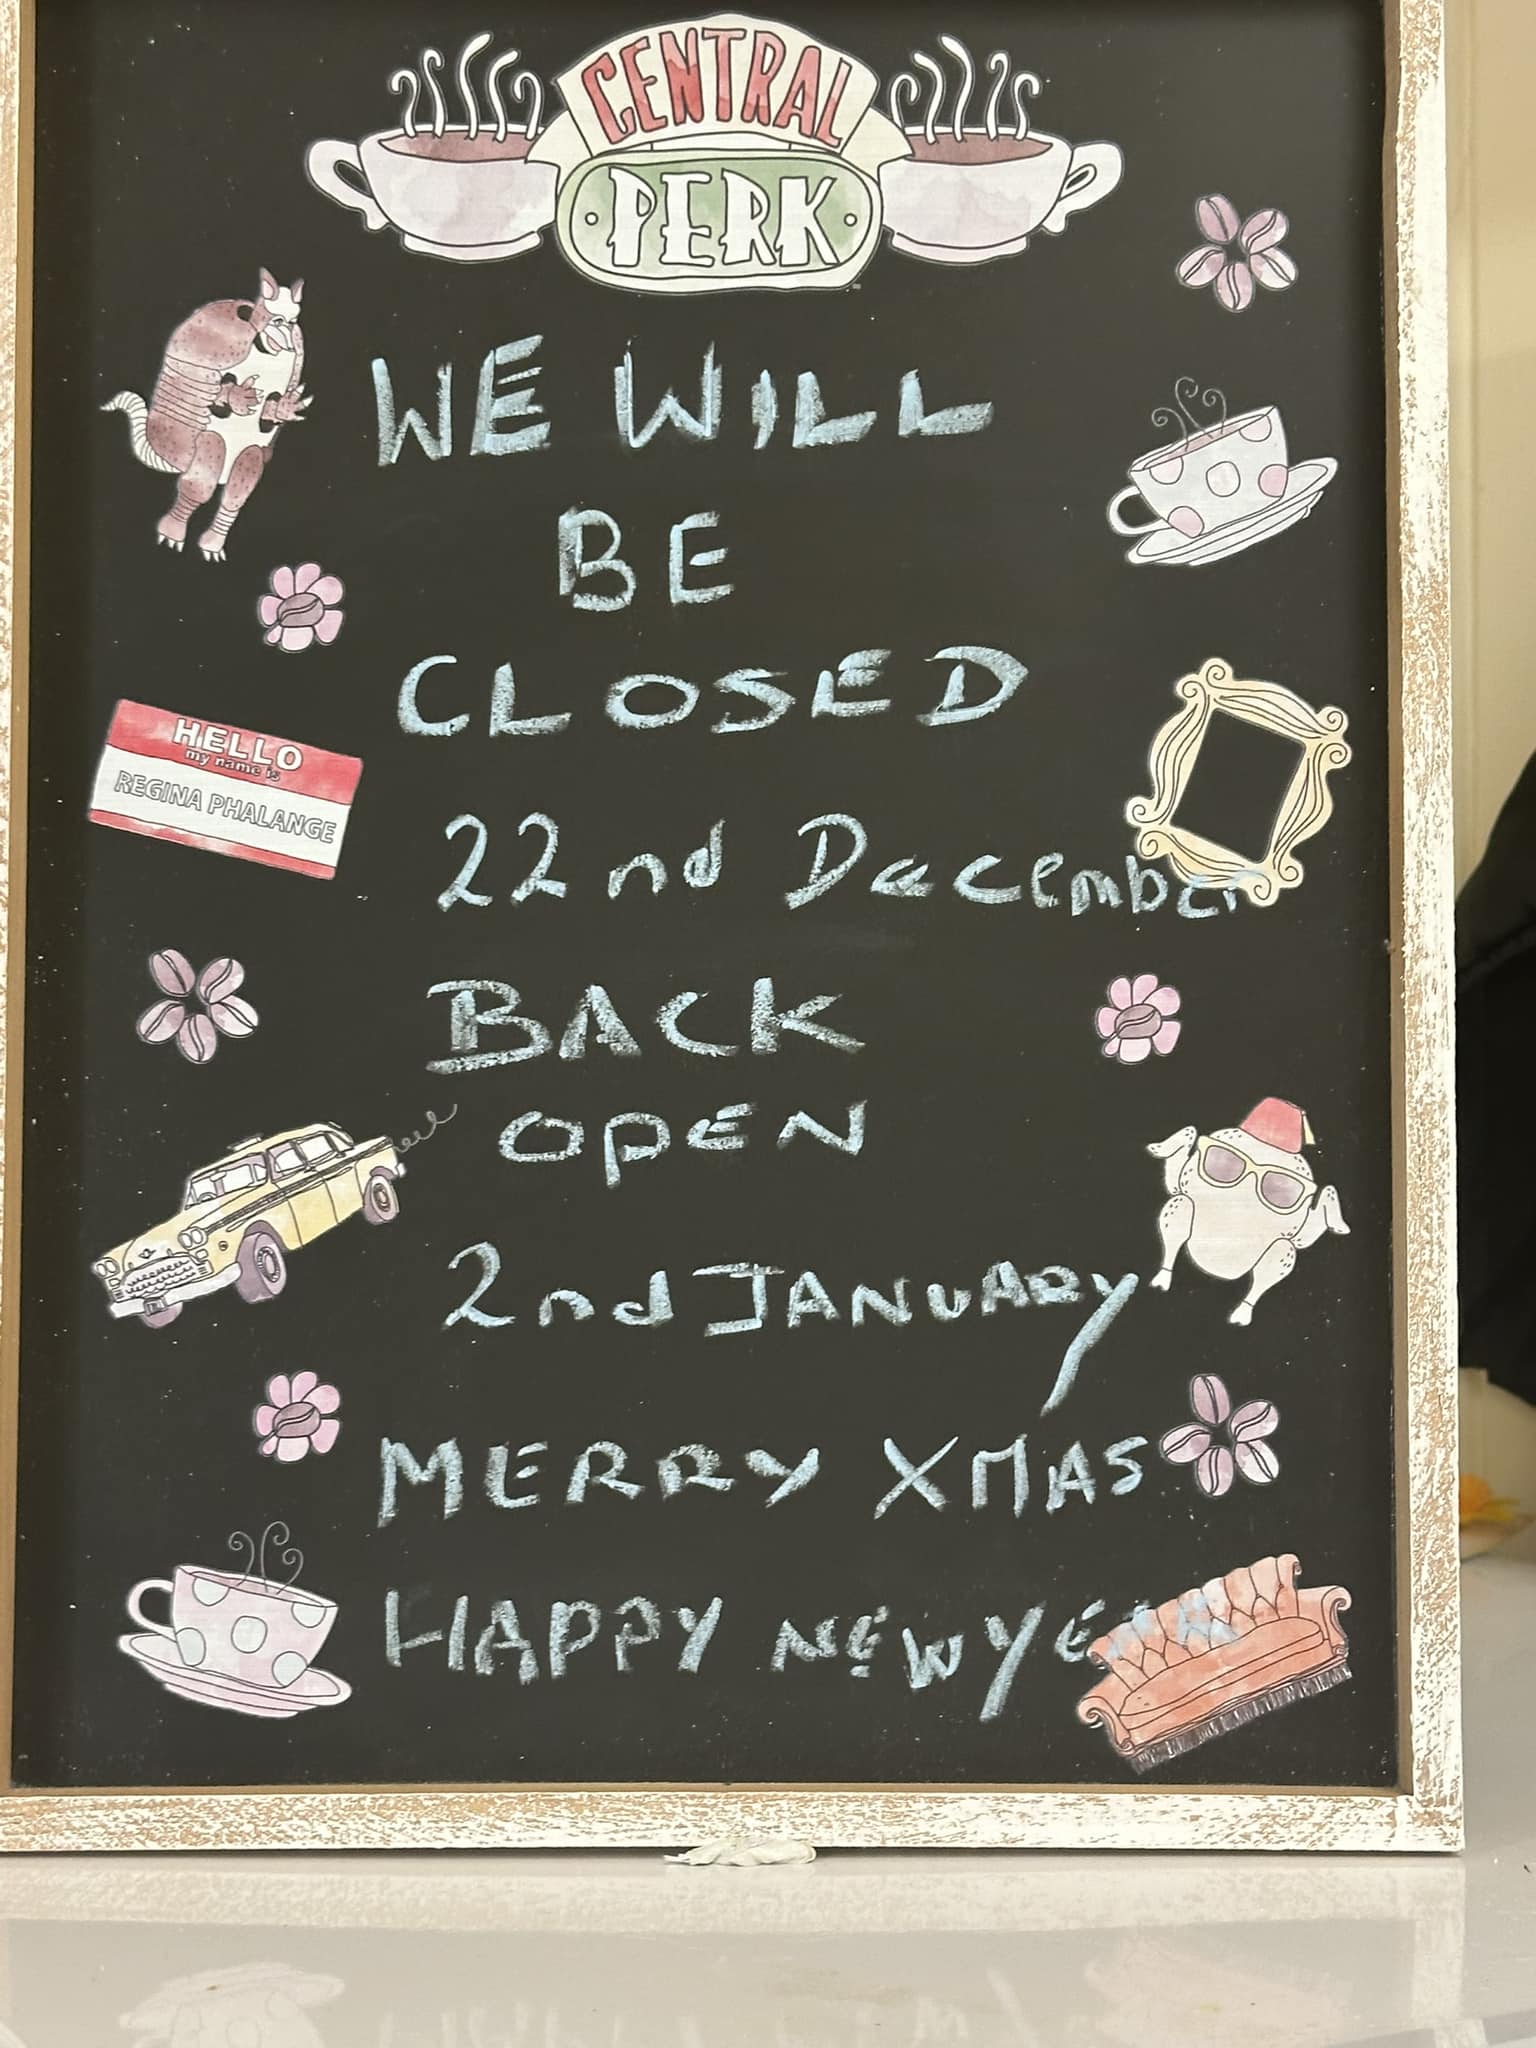 CENTRAL
PERK
WE WILL
BE
CLOSED
HELLO
my name is
REGINA PHALANGE
22nd December
BACK
OPEN
2nd JANUARY
MERRY XMAS
HAPPY NEW YEAR